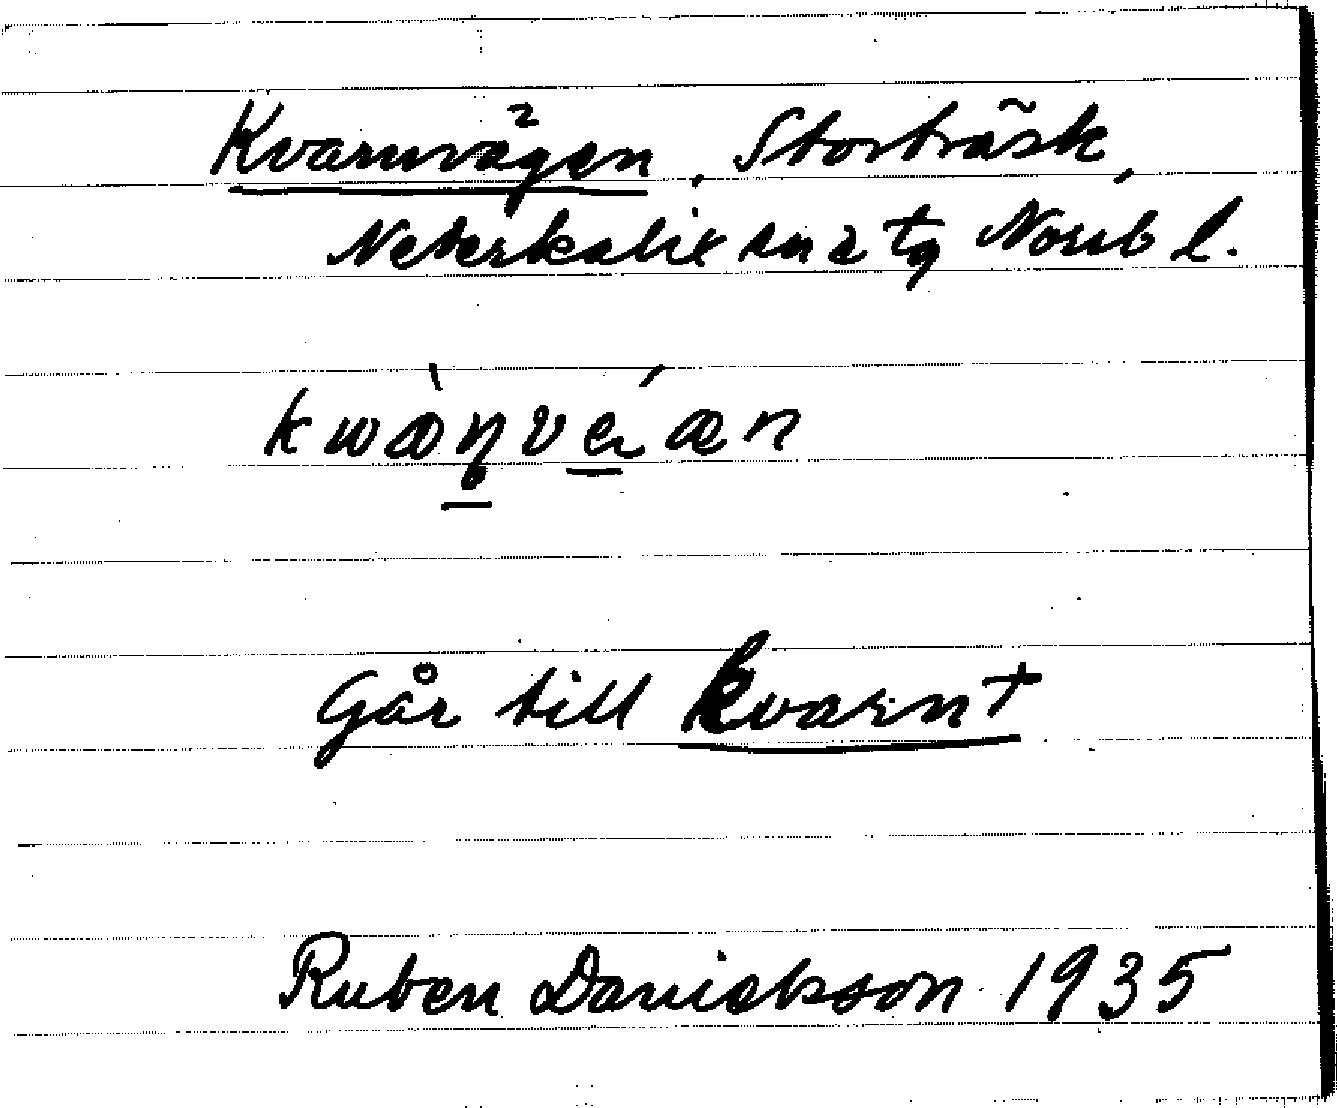 Kvarnvägen, Storträsk,
Nederkalix sn o tg Norrb l.
kwæ̀ṇvéæn
Går till kvarn†
Ruben Danielsson 1935